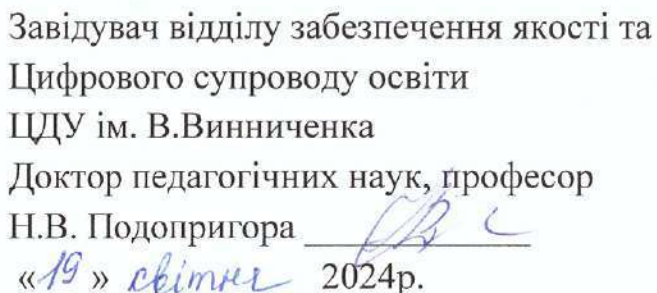 Завідувач відділу забезпечення якості та
Цифрового супроводу освіти
ЦДУ ім. В.Винниченка
Доктор педагогічних наук, професор
Н.В. Подопригора ______________
«19 » квітня 2024р.